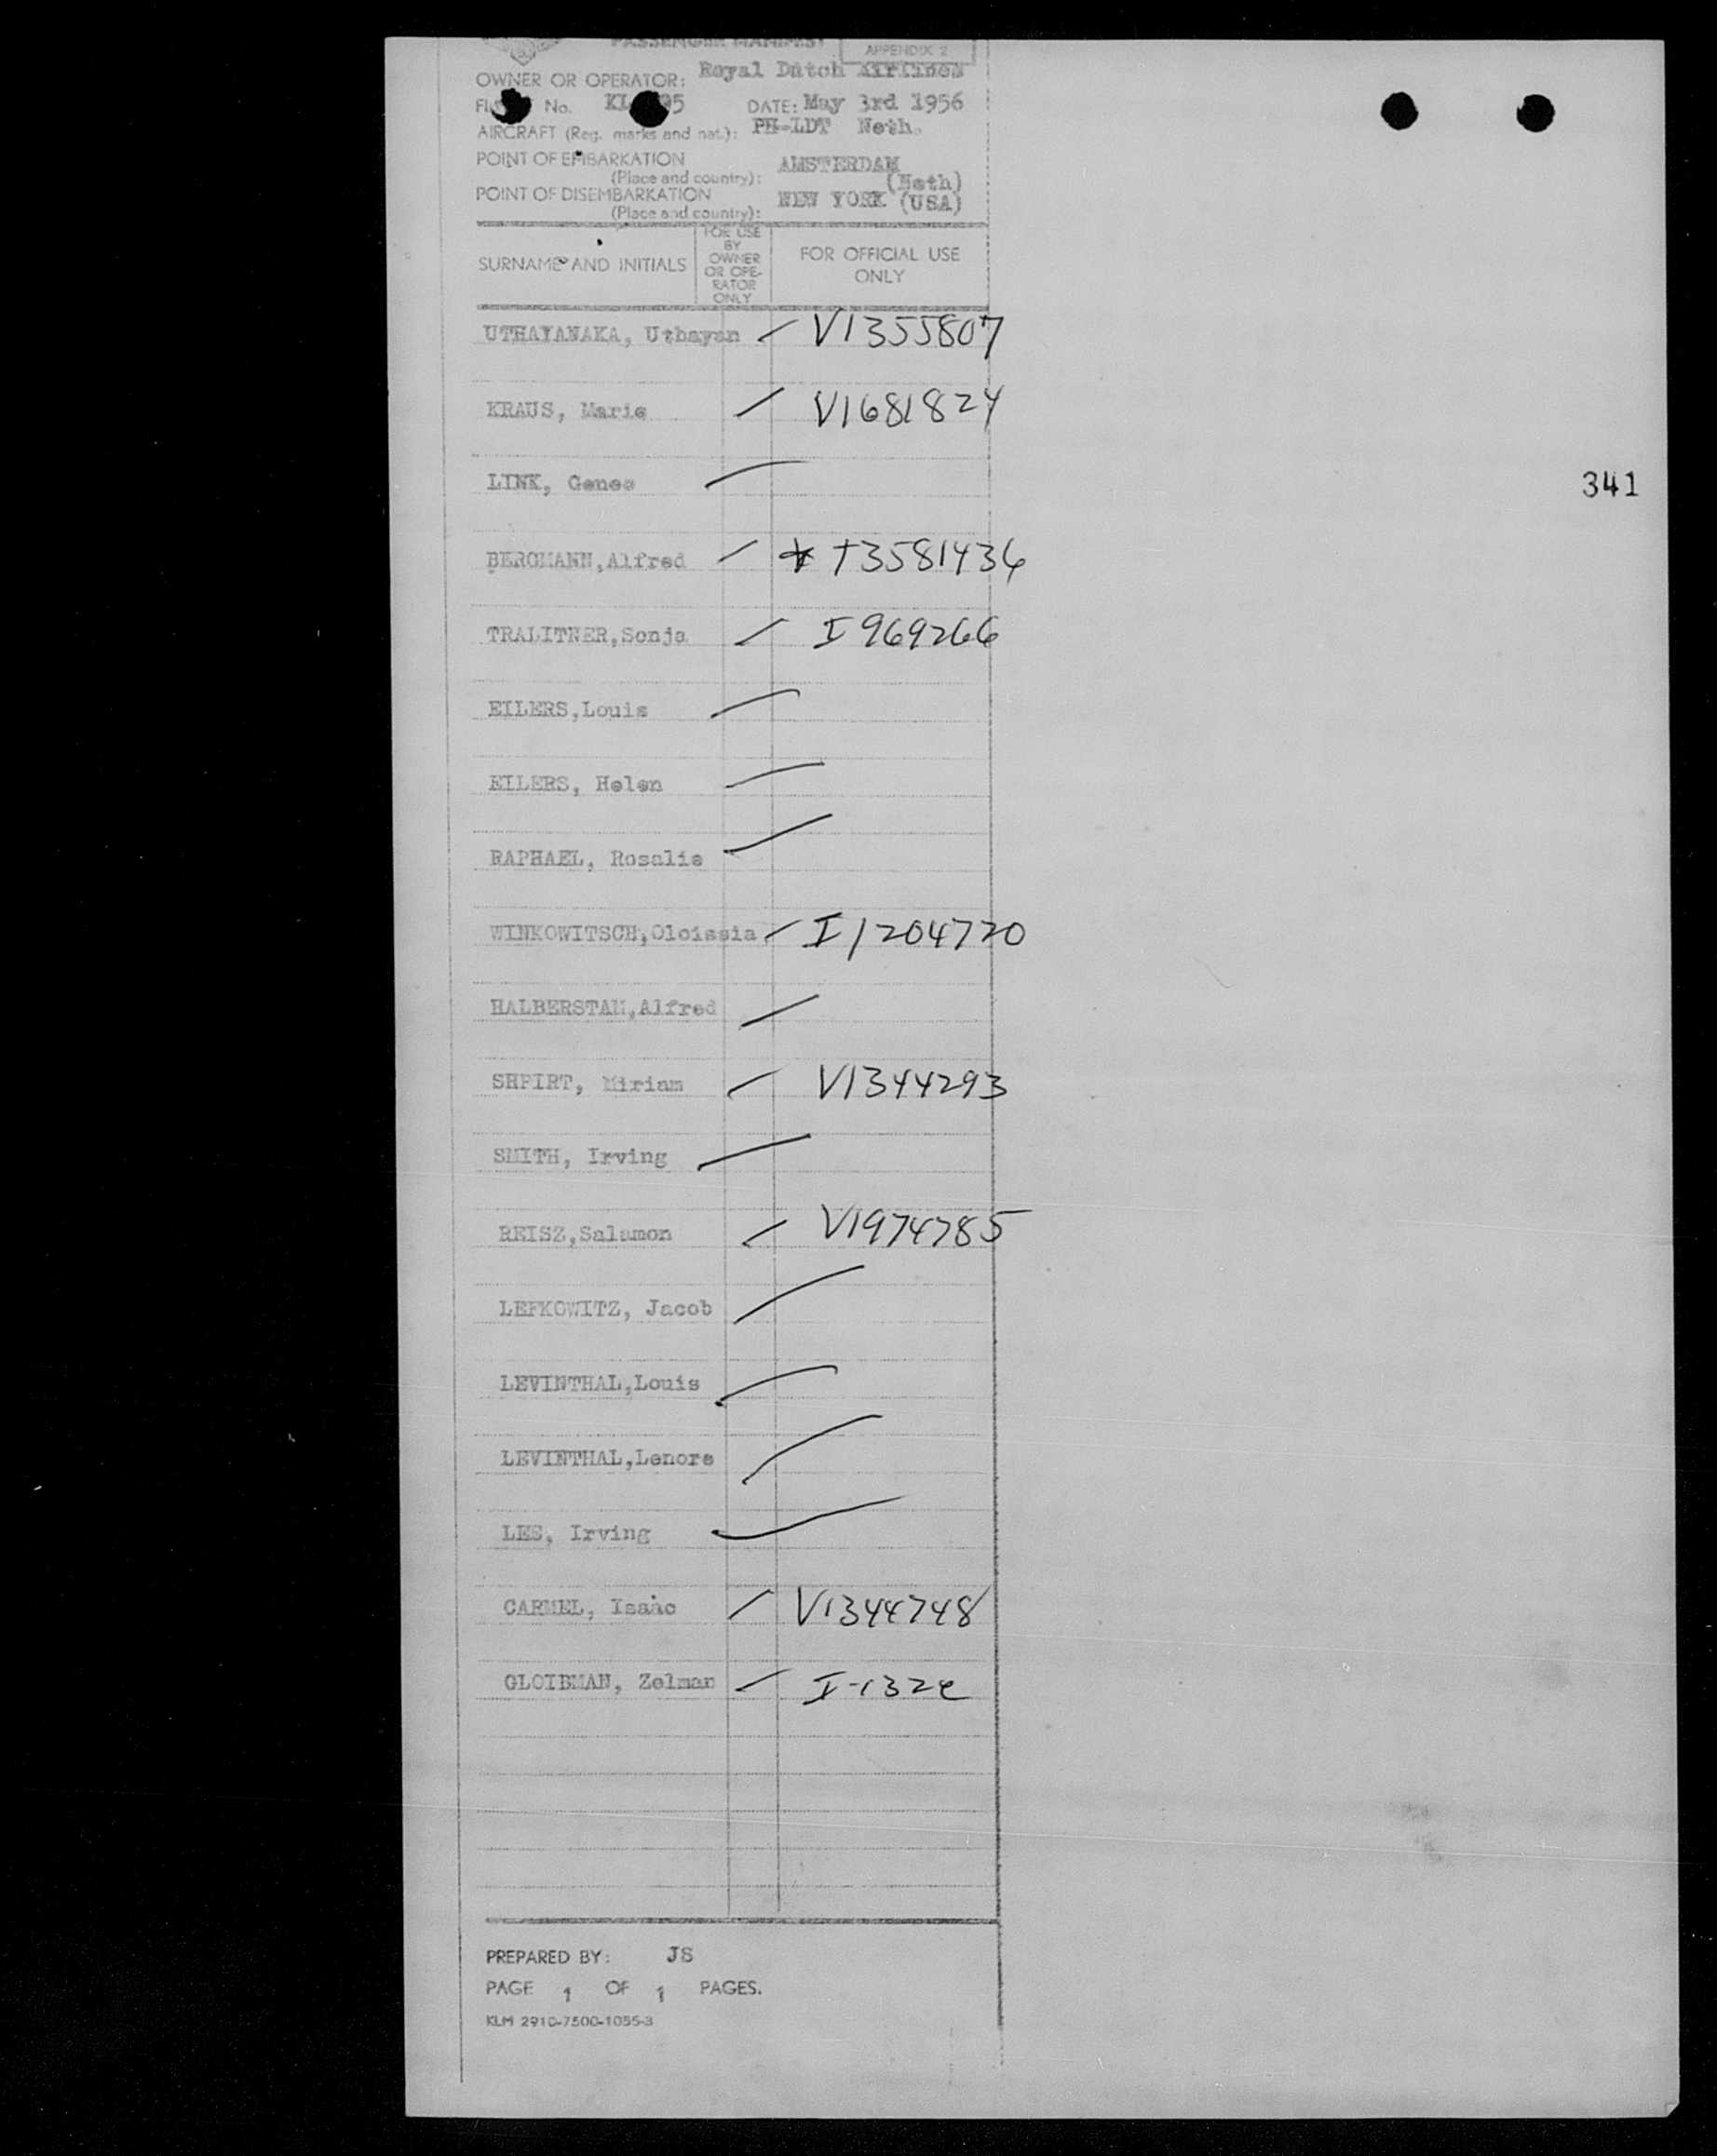 PASSENGER MANIFEST
APPENDIX 2
OWNER OR OPERATOR: Royal Dutch Airlines
No. KL 95 DATE: May 3rd 1956
AIRCRAFT (Reg. marks and nat.): PH-LDT Neth.
POINT OF EMBARKATION AMSTERDAM
(Place and country): (Neth)
POINT OF DISEMBARKATION NEW YORK (USA)
(Place and country):
SURNAME AND INITIALS
FOR USE
BY
OWNER
OR OPE-
RATOR
ONLY
FOR OFFICIAL USE
ONLY
UTHAYANAKA, Uthayan V1355807
KRAUS, Marie V1681824
LINK, Genes
341
BERGMANN,Alfred T3581436
TRALITNER,Sonja I 969266
EILERS,Louis
EILERS, Helen
RAPHAEL, Rosalie
WINKOWITSCH,Oloissia I1204720
HALBERSTAM,Alfred
SHPIRT, Miriam V1344293
SMITH, Irving
REISZ,Salamon V1974785
LEFKOWITZ, Jacob
LEVINTHAL,Louis
LEVINTHAL,Lenore
LES, Irving
CARMEL, Isaac V1344748
GLOIBMAN, Zelman I-132e
PREPARED BY: JS
PAGE 1 OF 1 PAGES.
KLM 2910-7500-1055-3